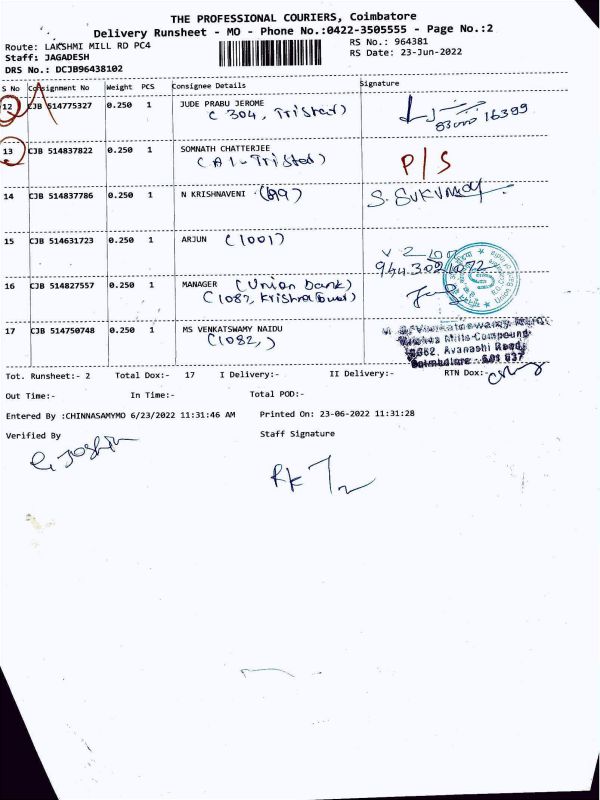 THE PROFESSIONAL COURIERS, Coimbatore
Delivery Runsheet - MO - Phone No.:0422-3505555 - Page No.:2
Route: LAKSHMI MILL RD PC4 RS No.: 964381
Staff: JAGADESH RS Date: 23-Jun-2022
DRS No.: DCJB96438102
S No Consignment No Weight PCS Consignee Details Signature
12 CJB 514775327 0.250 1 JUDE PRABU JEROME
(304, Tristar) 16399
13 CJB 514837822 0.250 1 SOMNATH CHATTERJEE
(A1-Tristar) P/S
14 CJB 514837786 0.250 1 N KRISHNAVENI (99) S. SUKUMAR
15 CJB 514631723 0.250 1 ARJUN (1001)
16 CJB 514827557 0.250 1 MANAGER (Union bank)
(1087, Krishna
17 CJB 514750748 0.250 1 MS VENKATSWAMY NAIDU
(1082,)
Mills Compound
Avanashi Road
Coimbatore - 641 037
Tot. Runsheet:- 2 Total Dox:- 17 I Delivery:- II Delivery:- RTN Dox:-
Out Time:- In Time:- Total POD:-
Entered By :CHINNASAMYMO 6/23/2022 11:31:46 AM Printed On: 23-06-2022 11:31:28
Verified By Staff Signature